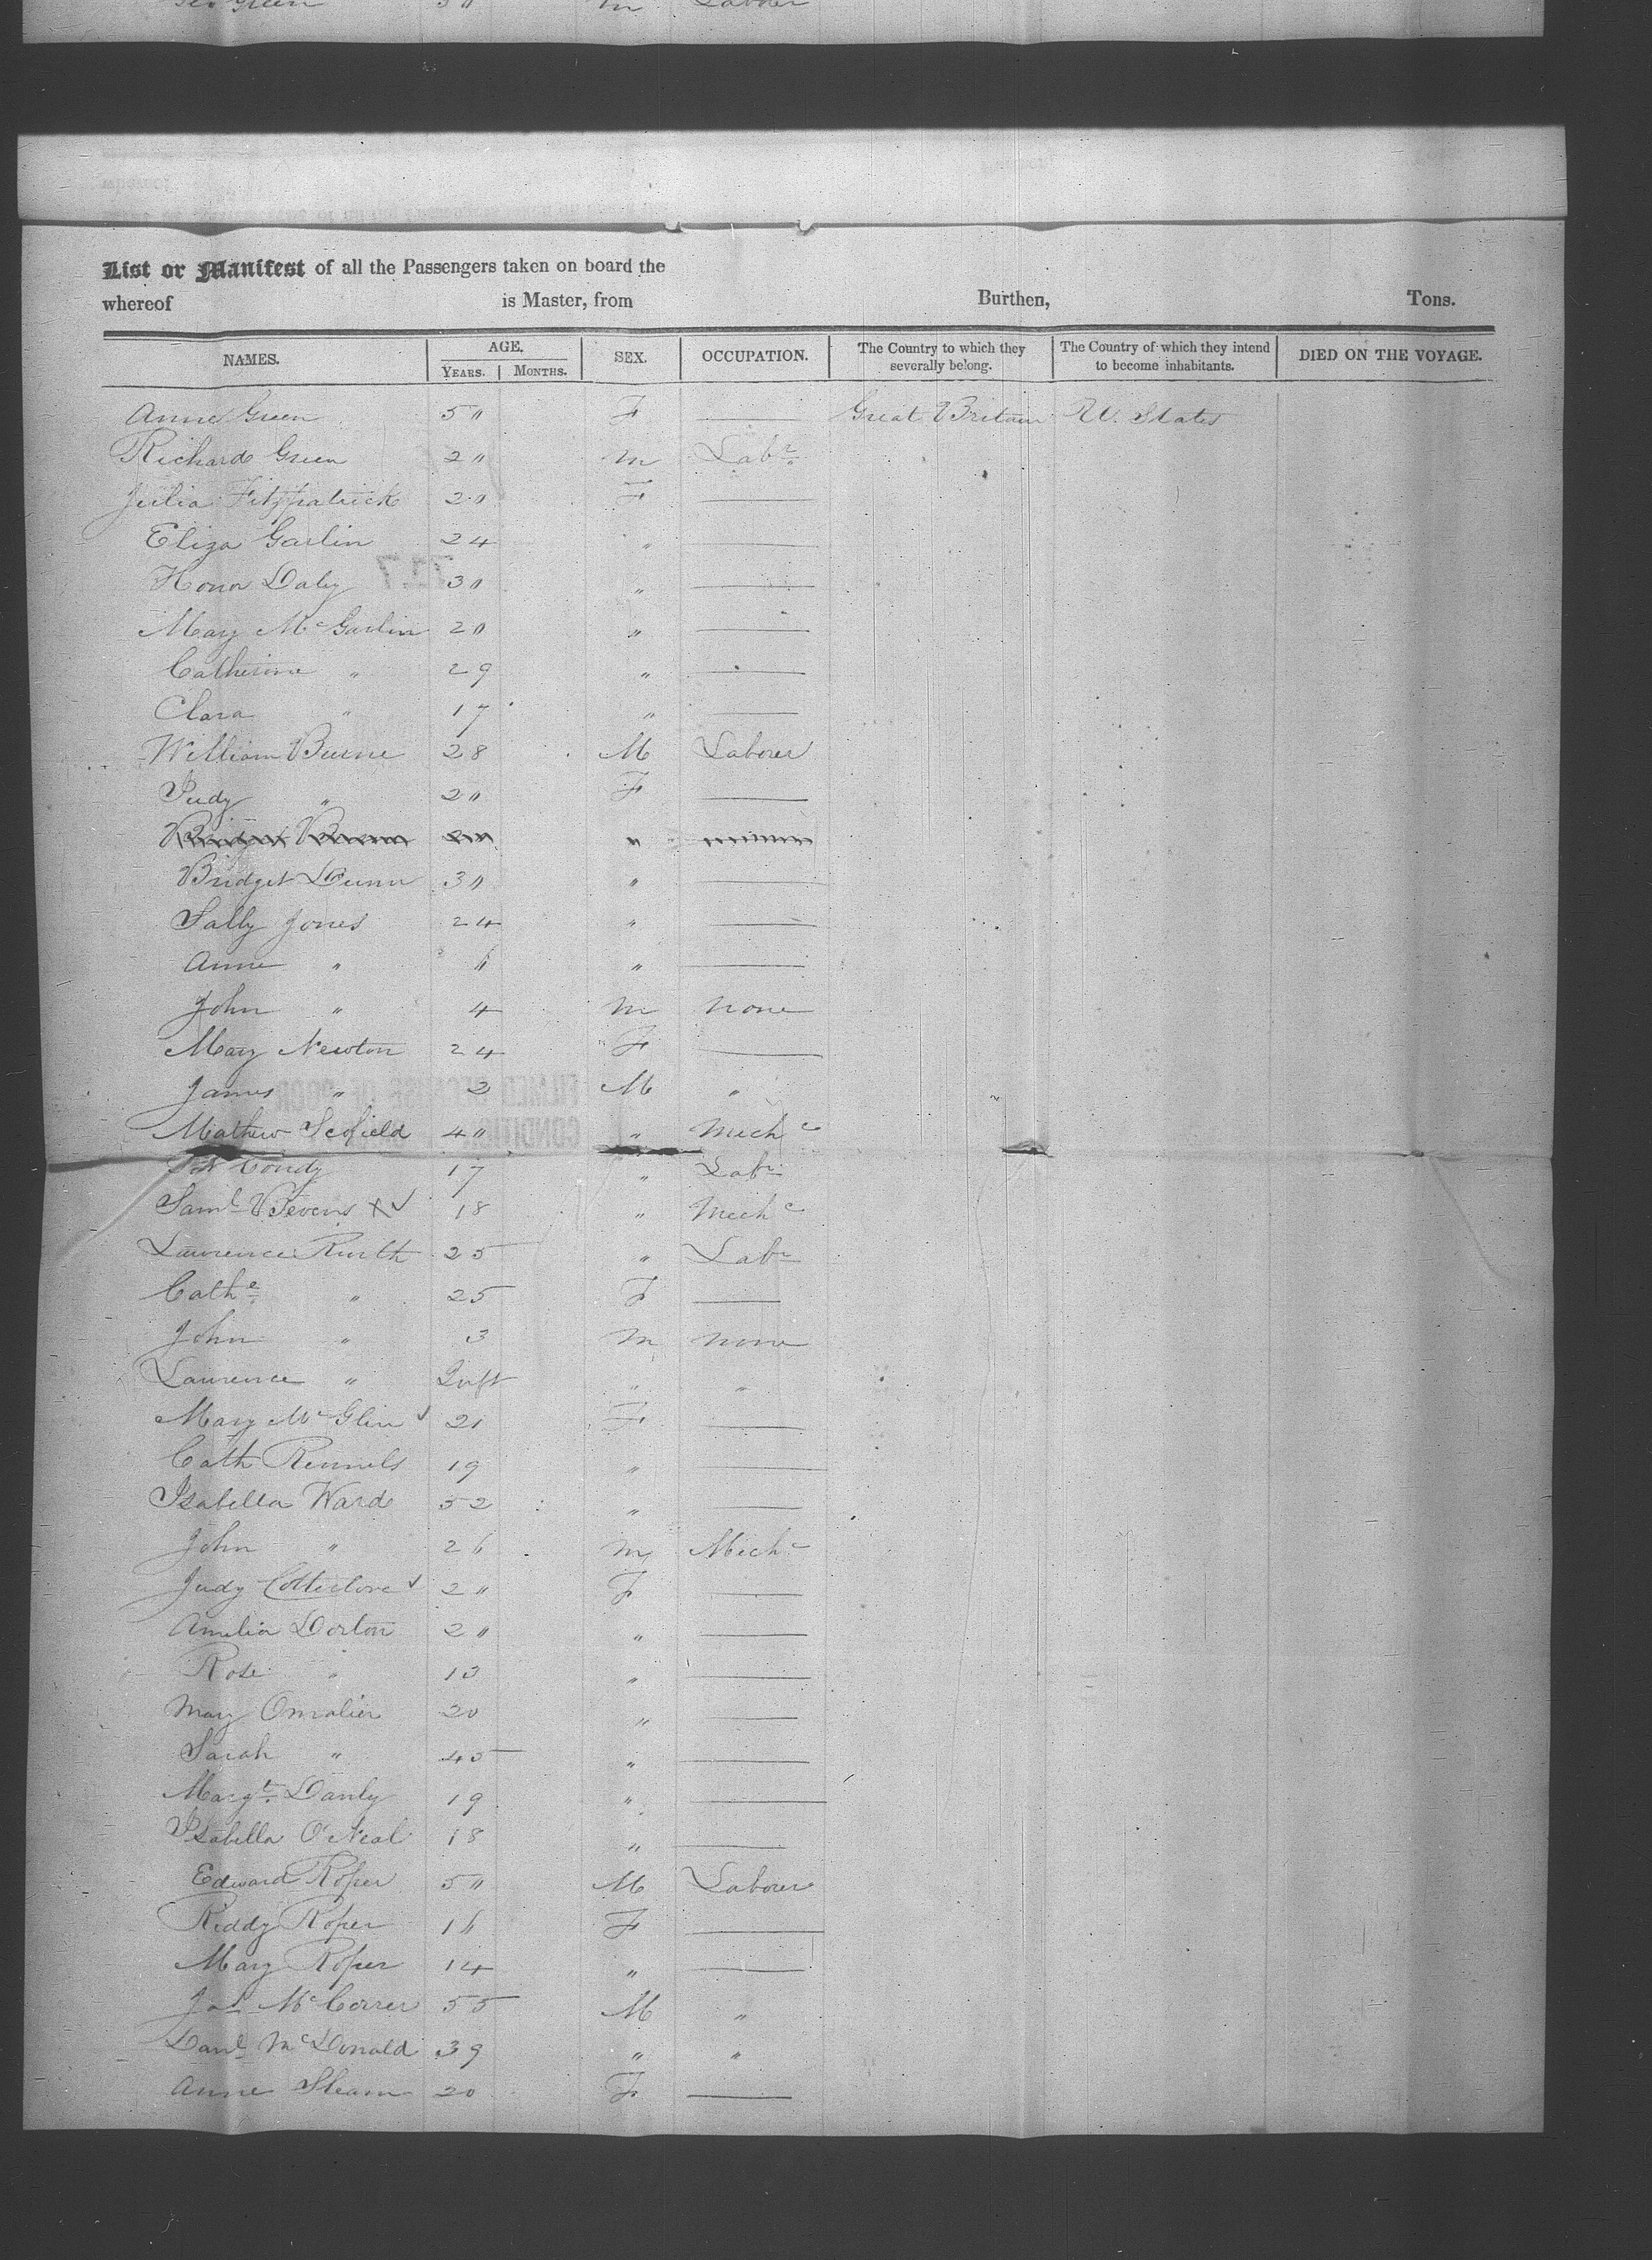 Geo Green 50 m Labour
List or Manifest of all the Passengers taken on board the
whereof is Master, from Burthen, Tons.
NAMES. AGE. SEX. OCCUPATION. The Country to which they severally belong. The Country of which they intend to become inhabitants. DIED ON THE VOYAGE.
YEARS. MONTHS.
Anne Green 50 F — Great Britain U. States
Richard Green 20 m Labr
Julia Fitzpatrick 20 F —
Eliza Garlin 24 " —
Honor Daly 30 " —
Mary McGarlin 20 " —
Catherine " 29 " —
Clara " 17 " —
William Burne 28 M Laborer
Judy " 20 F —
Bridget Dunn 30 " —
Sally Jones 24 " —
Anne " 6 " —
John " 4 m none
Mary Newton 24 F —
James " 2 M "
Mathew Scofield 40 " Mechc
Condy 17 " Labr
Saml Bevens 18 " Mechc
Lawrence Ruth 25 " Labr
Cathe " 25 F —
John " 3 m none
Lawrence " Inft " "
Mary McGlin 21 F —
Cath Rennels 19 " —
Isabella Ward 52 " —
John " 26 m Mechc
Judy 20 F —
Amelia Dorton 20 " —
Rose " 13 " —
Mary Omalier 20 " —
Sarah " 45 " —
Margt Danly 19 " —
Isabella O'Neal 18 " —
Edward Roper 50 M Labourer
Riddy Roper 16 F —
Mary Roper 14 " —
Jas McCorrer 55 M "
Danl McDonald 39 " "
Anne Sloam 20 F —